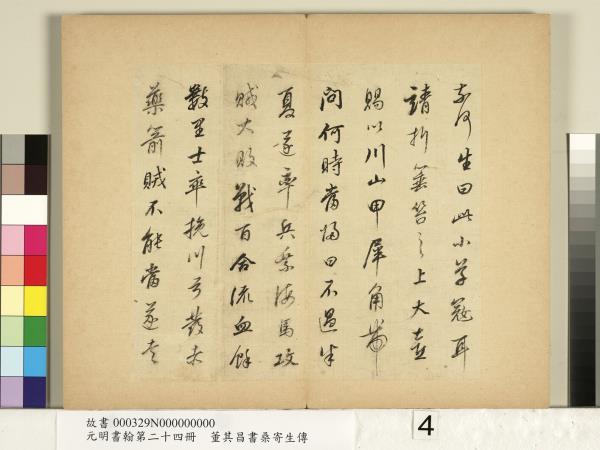 奈何生曰此小草寇耳
請折箠笞之上大喜
賜以川山甲犀角帶
問何時當歸曰不過半
夏遂率兵乘海馬攻
賊大敗戰百合流血餘
數里士卒挽川弓發
藥箭賊不能當遂走
故書 000329N000000000
元明書翰第二十四冊 董其昌書桑寄生傳
4